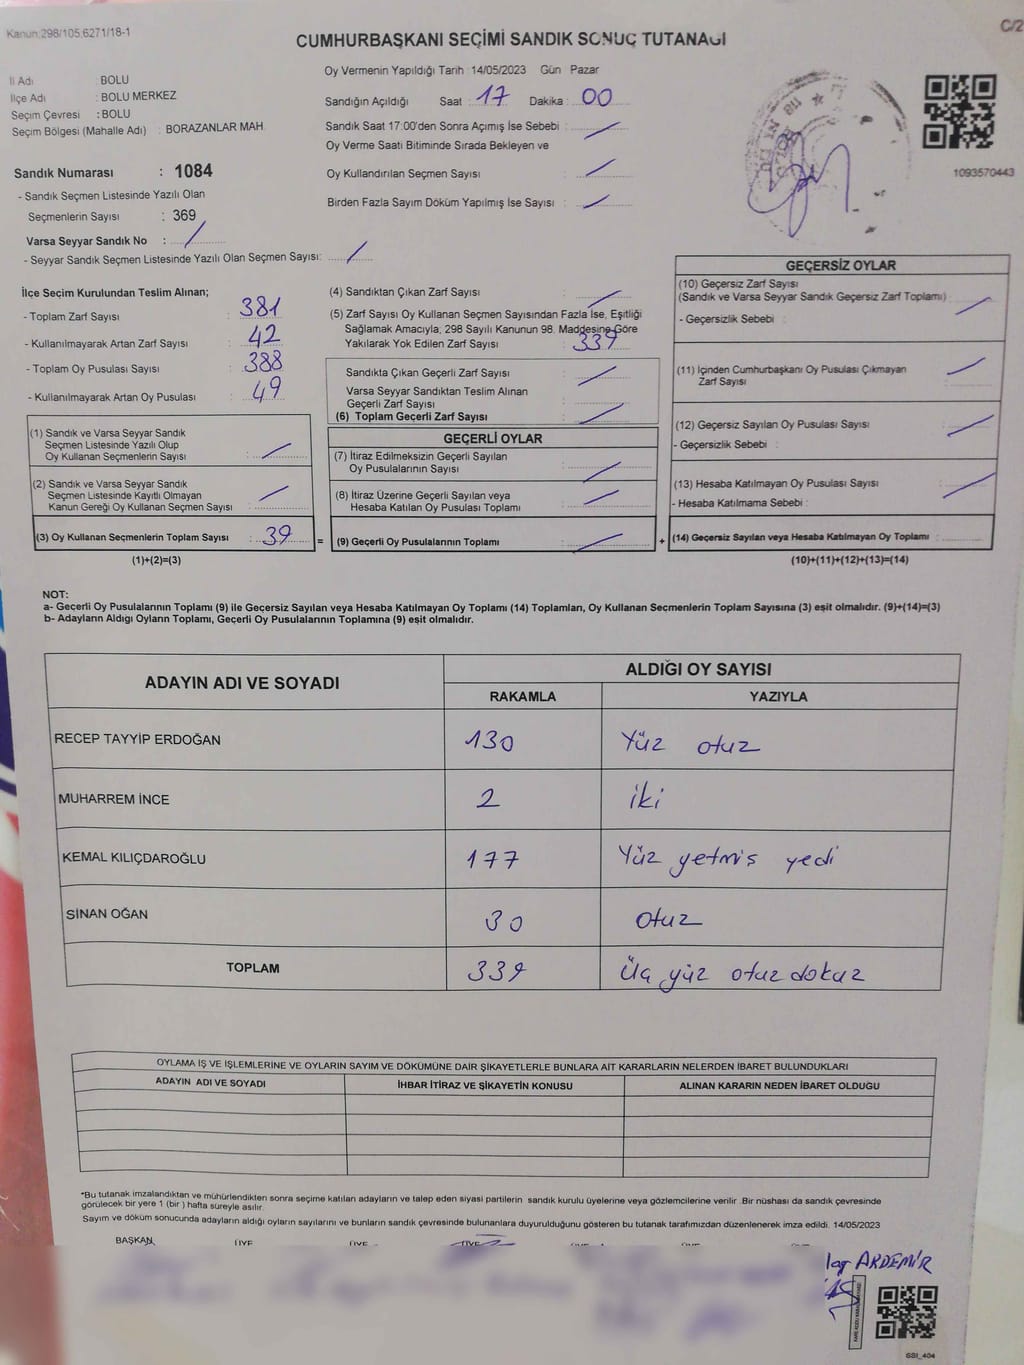 Kanun:298/105,6271/18-1
C/2
CUMHURBAŞKANI SEÇİMİ SANDIK SONUÇ TUTANAĞI
İl Adı : BOLU
İlçe Adı : BOLU MERKEZ
Seçim Çevresi : BOLU
Seçim Bölgesi (Mahalle Adı) : BORAZANLAR MAH
Sandık Numarası : 1084
- Sandık Seçmen Listesinde Yazılı Olan
Seçmenlerin Sayısı : 369
Varsa Seyyar Sandık No : /
- Seyyar Sandık Seçmen Listesinde Yazılı Olan Seçmen Sayısı: /
Oy Vermenin Yapıldığı Tarih : 14/05/2023 Gün Pazar
Sandığın Açıldığı Saat : 17 Dakika : 00
Sandık Saat 17:00'den Sonra Açımış İse Sebebi : /
Oy Verme Saati Bitiminde Sırada Bekleyen ve
Oy Kullandırılan Seçmen Sayısı : /
Birden Fazla Sayım Döküm Yapılmış İse Sayısı : /
1093570443
İlçe Seçim Kurulundan Teslim Alınan;
- Toplam Zarf Sayısı : 381
- Kullanılmayarak Artan Zarf Sayısı : 42
- Toplam Oy Pusulası Sayısı : 388
- Kullanılmayarak Artan Oy Pusulası : 49
(1) Sandık ve Varsa Seyyar Sandık
Seçmen Listesinde Yazılı Olup
Oy Kullanan Seçmenlerin Sayısı : /
(2) Sandık ve Varsa Seyyar Sandık
Seçmen Listesinde Kayıtlı Olmayan
Kanun Gereği Oy Kullanan Seçmen Sayısı : /
(3) Oy Kullanan Seçmenlerin Toplam Sayısı : 39
(1)+(2)=(3)
(4) Sandıktan Çıkan Zarf Sayısı : /
(5) Zarf Sayısı Oy Kullanan Seçmen Sayısından Fazla İse, Eşitliği
Sağlamak Amacıyla; 298 Sayılı Kanunun 98. Maddesine Göre
Yakılarak Yok Edilen Zarf Sayısı : 339
Sandıkta Çıkan Geçerli Zarf Sayısı : /
Varsa Seyyar Sandıktan Teslim Alınan
Geçerli Zarf Sayısı :
(6) Toplam Geçerli Zarf Sayısı : /
GEÇERLİ OYLAR
(7) İtiraz Edilmeksizin Geçerli Sayılan
Oy Pusulalarının Sayısı : /
(8) İtiraz Üzerine Geçerli Sayılan veya
Hesaba Katılan Oy Pusulası Toplamı : /
= (9) Geçerli Oy Pusulalarının Toplamı : /
GEÇERSİZ OYLAR
(10) Geçersiz Zarf Sayısı
(Sandık ve Varsa Seyyar Sandık Geçersiz Zarf Toplamı) : /
- Geçersizlik Sebebi :
(11) İçinden Cumhurbaşkanı Oy Pusulası Çıkmayan
Zarf Sayısı : /
(12) Geçersiz Sayılan Oy Pusulası Sayısı : /
- Geçersizlik Sebebi :
(13) Hesaba Katılmayan Oy Pusulası Sayısı : /
- Hesaba Katılmama Sebebi :
+ (14) Geçersiz Sayılan veya Hesaba Katılmayan Oy Toplamı :
(10)+(11)+(12)+(13)=(14)
NOT:
a- Geçerli Oy Pusulalarının Toplamı (9) ile Geçersiz Sayılan veya Hesaba Katılmayan Oy Toplamı (14) Toplamları, Oy Kullanan Seçmenlerin Toplam Sayısına (3) eşit olmalıdır. (9)+(14)=(3)
b- Adayların Aldığı Oyların Toplamı, Geçerli Oy Pusulalarının Toplamına (9) eşit olmalıdır.
ADAYIN ADI VE SOYADI ALDIĞI OY SAYISI
RAKAMLA YAZIYLA
RECEP TAYYİP ERDOĞAN 130 Yüz otuz
MUHARREM İNCE 2 iki
KEMAL KILIÇDAROĞLU 177 Yüz yetmiş yedi
SİNAN OĞAN 30 otuz
TOPLAM 339 Üç yüz otuz dokuz
OYLAMA İŞ VE İŞLEMLERİNE VE OYLARIN SAYIM VE DÖKÜMÜNE DAİR ŞİKAYETLERLE BUNLARA AİT KARARLARIN NELERDEN İBARET BULUNDUKLARI
ADAYIN ADI VE SOYADI İHBAR İTİRAZ VE ŞİKAYETİN KONUSU ALINAN KARARIN NEDEN İBARET OLDUĞU
*Bu tutanak imzalandıktan ve mühürlendikten sonra seçime katılan adayların ve talep eden siyasi partilerin sandık kurulu üyelerine veya gözlemcilerine verilir .Bir nüshası da sandık çevresinde
görülecek bir yere 1 (bir ) hafta süreyle asılır.
Sayım ve döküm sonucunda adayların aldığı oyların sayılarını ve bunların sandık çevresinde bulunanlara duyurulduğunu gösteren bu tutanak tarafımızdan düzenlenerek imza edildi. 14/05/2023
BAŞKAN ÜYE ÜYE ÜYE ÜYE ÜYE ÜYE
ARDEMİR
SSI_404